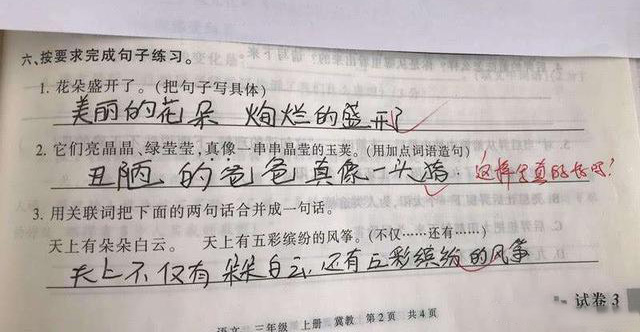 六、按要求完成句子练习。
1. 花朵盛开了。(把句子写具体)
美丽的花朵 绚烂的盛开
2. 它们亮晶晶、绿莹莹,真像一串串晶莹的玉荚。(用加点词语造句)
丑陋的爸爸真像一头猪. 这样写真的好吗?
3. 用关联词把下面的两句话合并成一句话。
天上有朵朵白云。 天上有五彩缤纷的风筝。(不仅……还有……)
天上不仅有朵朵白云,还有五彩缤纷的风筝
试卷 3
语文 三年级 上册 冀教 第2页 共4页